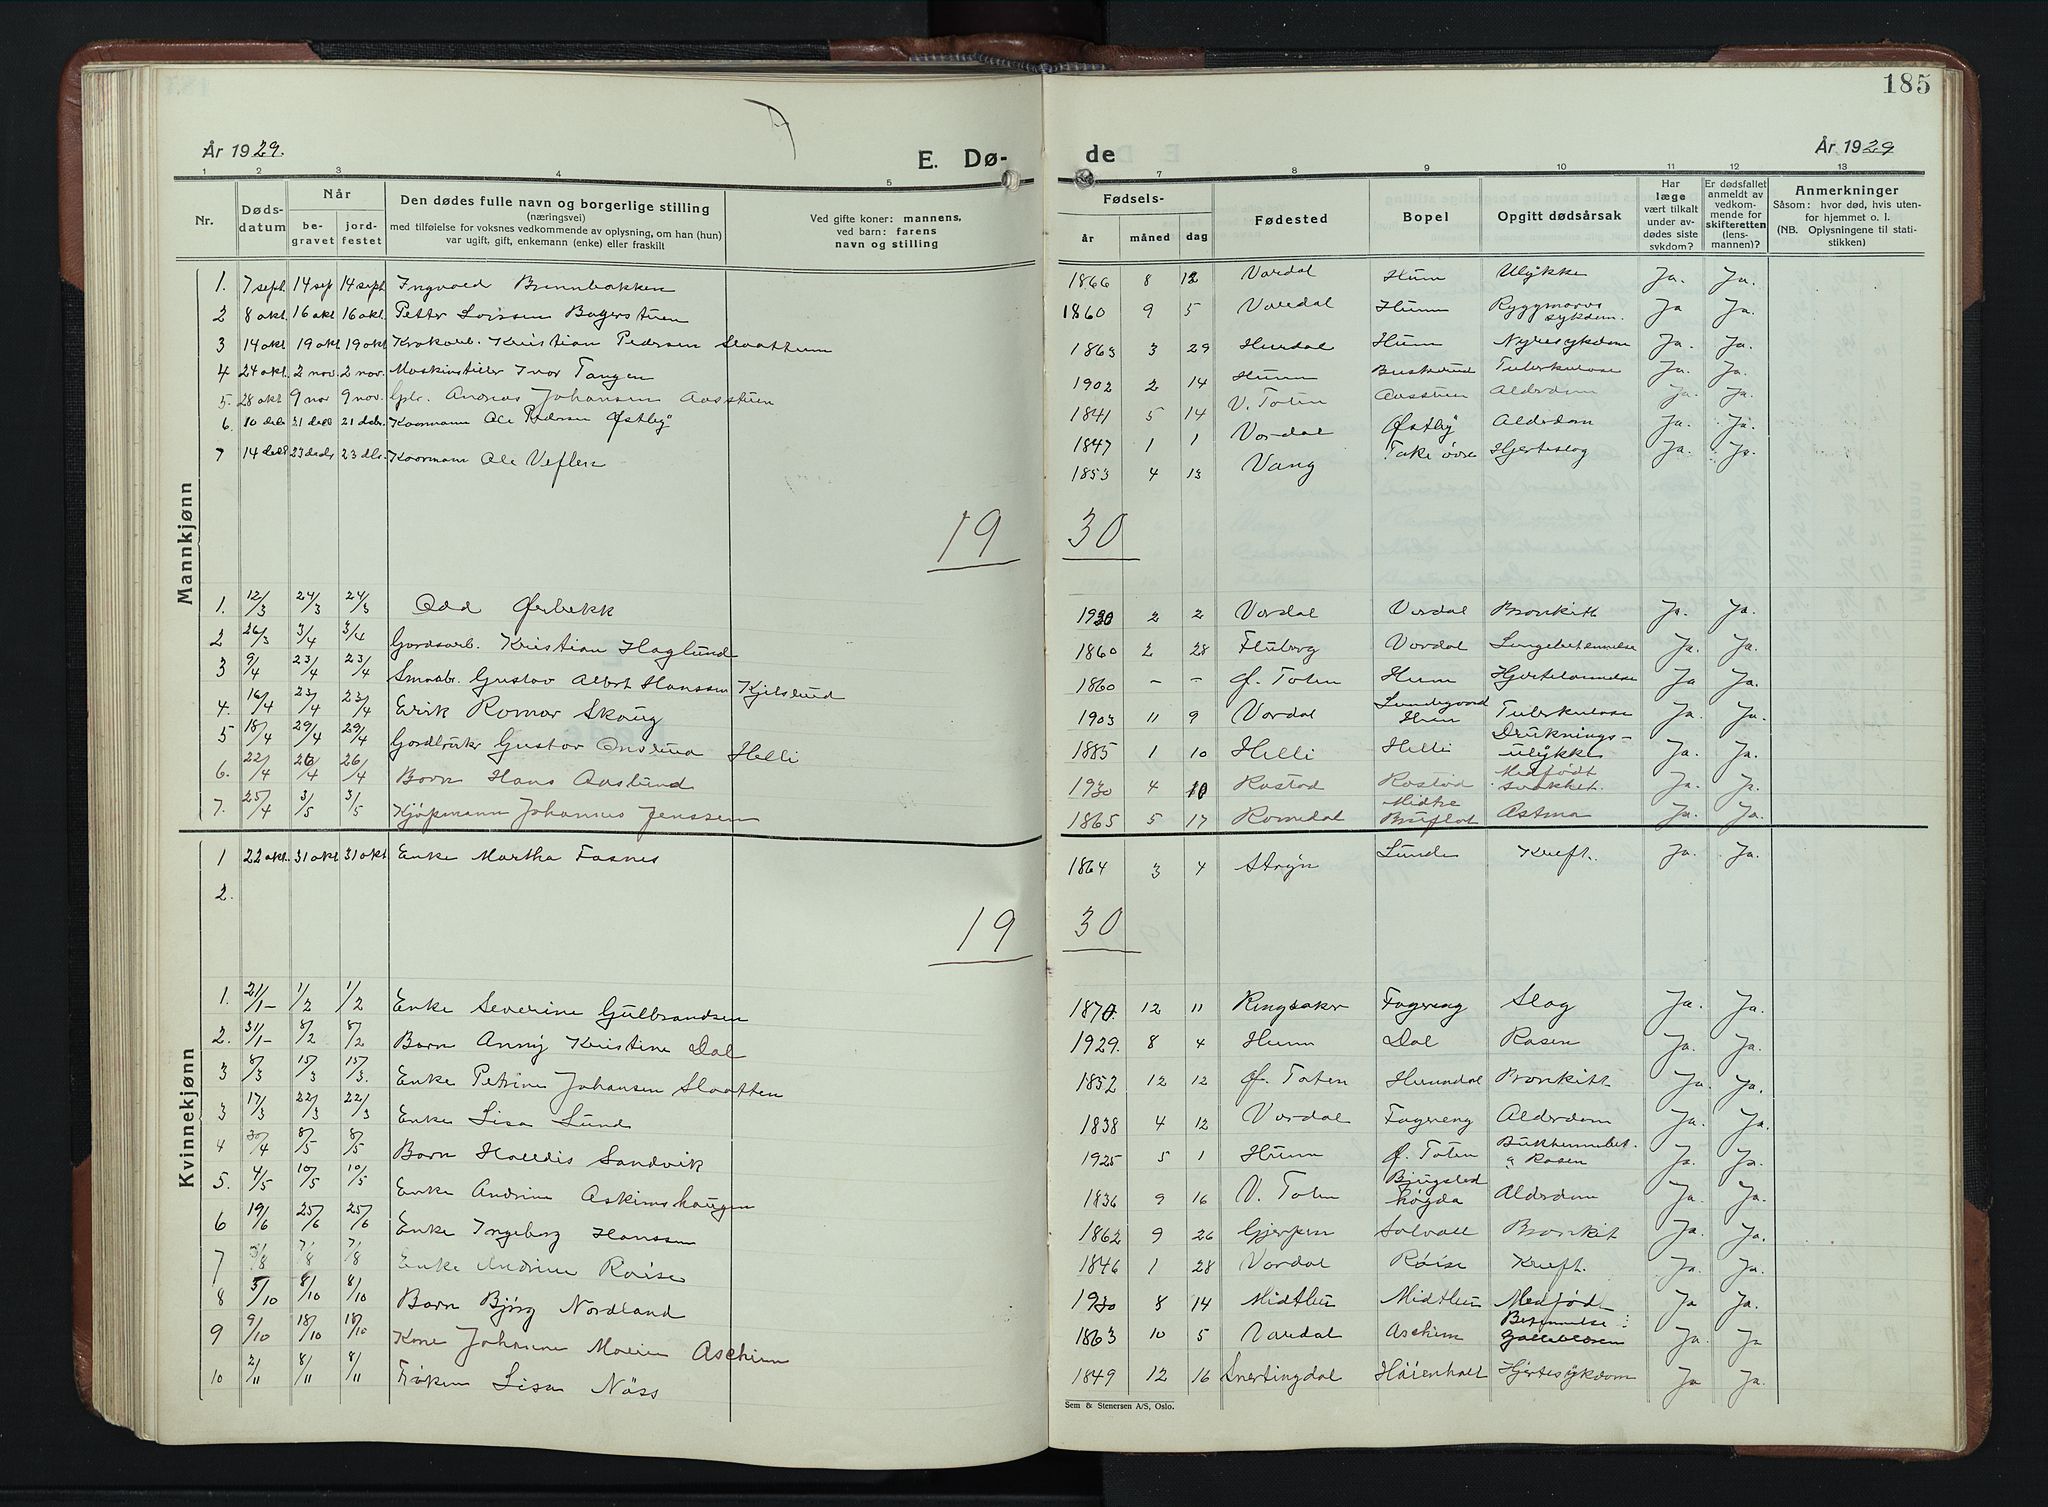 185
År 1929.
E. Dø-
de
År 1929
1 2 3 4 5 7 8 9 10 11 12 13
Nr.
Døds-
datum
Når
be-
gravet
jord-
festet
Den dødes fulle navn og borgerlige stilling
(næringsvei)
med tilføielse for voksnes vedkommende av oplysning, om han (hun)
var ugift, gift, enkemann (enke) eller fraskilt
Ved gifte koner: mannens,
ved barn: farens
navn og stilling
Fødsels-
år måned dag
Fødested
Bopel
Opgitt dødsårsak
Har
læge
vært tilkalt
under av-
dødes siste
sykdom?
Er dødsfallet
anmeldt av
vedkom-
mende for
skifteretten
(lens-
mannen)?
Anmerkninger
Såsom: hvor død, hvis uten-
for hjemmet o. l.
(NB. Oplysningene til stati-
stikken)
Mannkjønn
1. 7 sept. 14 sep 14 sept Ingvald Brennbakken 1866 8 12 Vardal Hunn Ulykke Ja. Ja.
2 8 okt. 16 okt 16 okt. Petter Bagerstuen 1860 9 5 Vardal Hunn Ryggmarvs sykdom. Ja Ja.
3 14 okt 19 okt 19 okt Kristian Pedersen Slaattum 1863 3 29 Hurdal Hunn Nyresykdom Ja. Ja.
4 24 okt. 2 nov. 2 nov. Ivar Tangen 1902 2 14 Hunn Tuberkulose Ja. Ja.
5. 28 okt 9 nov 9 nov. Andreas Johansen Aasstuen 1841 5 14 V. Toten Aasstuen Alderdom Ja. Ja.
6. 10 des 21 des 21 des. Ole Pedersen Østby 1847 1 1 Vardal Østby Alderdom Ja. Ja.
7 14 des 23 des 23 des. Ole Veflen 1853 4 13 Vang Hjerteslag Ja. Ja.
19 30
1. 12/3 24/3 24/3 Odd Øverbekk 1930 2 2 Vardal Vardal Bronkitt Ja. Ja.
2 26/3 3/4 3/4 Gardsarb. Kristian Haglund 1860 2 28 Fluberg Vardal Lungebetennelse Ja. Ja.
3 9/4 23/4 23/4 Smaabr. Gustav Albert Hanssen Kjelslrud 1860 - - Ø. Toten Hunn Hjertelammelse Ja Ja.
4. 16/4 23/4 23/4 Erik Romar Skoug 1903 11 9 Vardal Lundegaard Hunn Tuberkulose Ja. Ja.
5 18/4 29/4 29/4 Gardbruker Gustav Onsrud Helli 1885 1 10 Helli Helli Druknings- ulykke Ja. Ja.
6. 22/4 26/4 26/4 Barn Hans Aaslund 1930 4 10 Rostad Rostad Medfødt svakhet. Ja. Ja.
7. 25/4 3/5 3/5 Kjøpmann Johannes Jenssen 1865 5 17 Romedal Midtre Bruflat Astma Ja. Ja.
Kvinnekjønn
1 22 okt. 31 okt 31 okt Enke Martha Fosnes 1864 3 4 Stryn Lunde Kreft. Ja. Ja.
2.
19 30
1. 21/1- 1/2 1/2 Enke Severine Gulbrandsen 1870. 12 11 Ringsaker Fagereng Slag Ja. Ja.
2. 31/1- 8/2 8/2 Barn Anny Kristine Dal 1929. 8 4 Hunn Dal Rosen Ja. Ja.
3 8/3 15/3 15/3. Enke Petrine Johansen Slaatten 1852 12 12 Ø. Toten Hunndal Bronkitt Ja. Ja.
3 17/3 22/3 22/3 Enke Lisa Lund 1838 4 12 Vardal Fagereng Alderdom Ja. Ja.
4 30/4 8/5 8/5 Barn Halldis Sandvik 1925 5 1 Hunn Ø. Toten Bukhinnebet. & Rosen Ja. Ja.
5. 4/5 10/5 10/5 Enke Andrine Askimshaugen 1836 9 16 V. Toten Bjugstad høgda Alderdom Ja. Ja.
6 19/6 25/6 25/6 Enke Ingeborg Hanssen 1862 9 26 Gjerpen Solvoll Bronkit Ja. Ja.
7 7/8 7/8 Enke Andrine Røise 1846 1 28 Vardal Røise Kreft. Ja. Ja.
8 3/10 8/10 8/10 Barn Bjørg Nordland 1930 8 14 Midthun Midthun Medfødt Ja Ja.
9 9/10 18/10 18/10 Kone Johanne Marie Aschim 1863 10 5 Vardal Aschim Betennelse i galleblæren Ja. Ja
10 2/11 8/11 8/11 Frøken Lisa Næss 1849 12 16 Snertingdal Høienhall Hjertesykdom Ja Ja.
Sem & Stenersen A/S, Oslo.